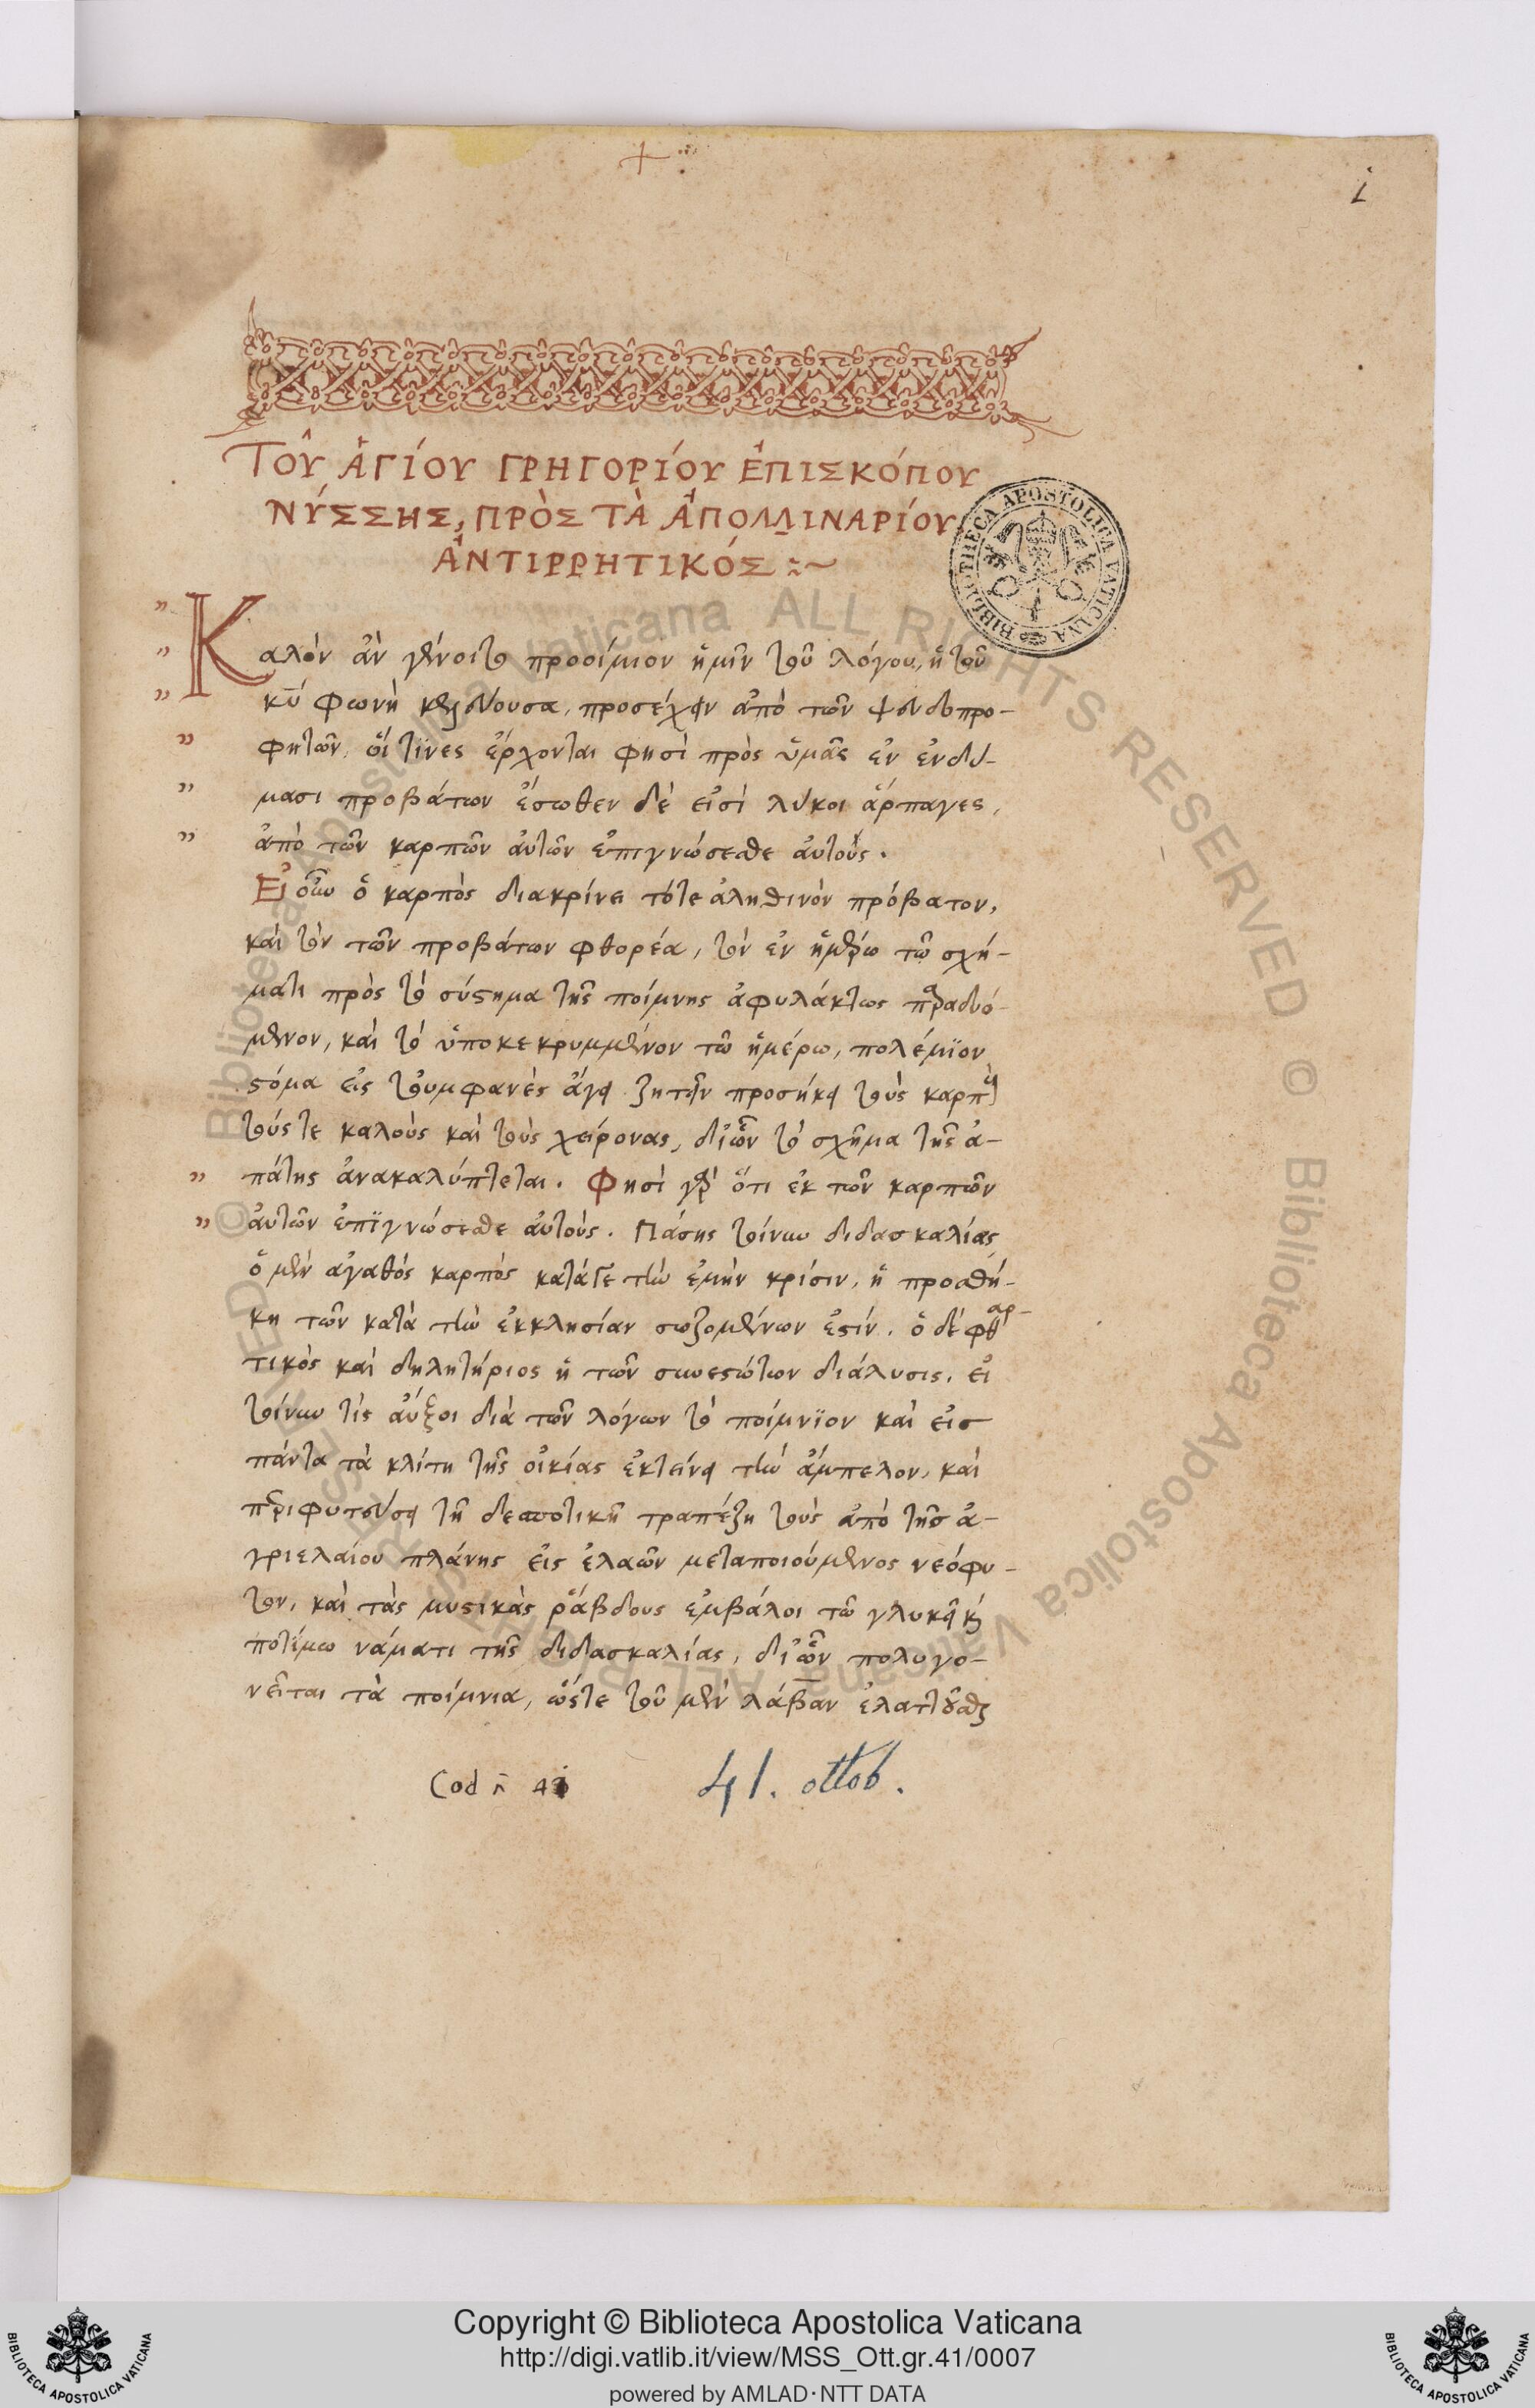 i
ΤΟῦ ἉΓΊΟΥ ΓΡΗΓΟΡΊΟΥ ἘΠΙΣΚΌΠΟΥ
ΝΎΣΣΗΣ, ΠΡῸΣ ΤᾺ ἈΠΟΛΛΙΝΑΡΊΟΥ
ἈΝΤΙΡΡΗΤΙΚΌΣ :~
Καλὸν ἂν γένοιτο προοίμιον ἡμῖν τοῦ λόγου, ἡ τοῦ
κῡ φωνὴ κελεύουσα, προσέχειν ἀπὸ τῶν ψευδοπρο-
φητῶν, οἵ τινες ἔρχονται φησὶ πρὸς ὑμᾶς ἐν ἐνδύ-
μασι προβάτων ἔσωθεν δέ εἰσὶ λύκοι ἅρπαγες,
ἀπὸ τῶν καρπῶν αὐτῶν ἐπιγνώσεσθε αὐτούς.
Εἰ οὖν ὁ καρπὸς διακρίνει τότε ἀληθινὸν πρόβατον,
καὶ τὸν τῶν προβάτων φθορέα, τὸν ἐν ἡμέρω τῶ σχή-
ματι πρὸς τὸ σύστημα τῆς ποίμνης ἀφυλάκτως παραδυό-
μενον, καὶ τὸ ὑποκεκρυμμένον τῶ ἡμέρω, πολέμϊον
στόμα εἰς τοὐμφανὲς ἄγει ζητεῖν προσήκει τοὺς καρποὺς
τούς τε καλοὺς καὶ τοὺς χείρονας, δι' ὧν τὸ σχῆμα τῆς ἀ-
πάτης ἀνακαλύπτεται. Φησὶ γὰρ ὅτι ἐκ τῶν καρπῶν
αὐτῶν ἐπϊγνώσεσθε αὐτούς. Πάσης τοίνυν διδασκαλίας
ὁ μὲν ἀγαθός καρπὸς κατάγε τὴν ἐμὴν κρίσιν, ἡ προσθή-
κη τῶν κατὰ τὴν ἐκκλησίαν σωζομένων ἐστίν. ὁ δὲ φθαρ-
τικὸς καὶ δηλητήριος ἡ τῶν συνεστώτων διάλυσις. εἰ
τοίνυν τίς αὔξοι διὰ τῶν λόγων τὸ ποίμνϊον καὶ εἰσ
πάντα τὰ κλίτη τῆς οἰκίας ἐκτείνει τὴν ἄμπελον, καὶ
περιφυτεύσει τῆ δεσποτικῆ τραπέζη τοὺς ἀπὸ τῆσ ἀ-
γριελαίου πλάνης εἰς ἐλαῶν μεταποιούμενος νεόφυ-
τον, καὶ τὰς μυστικὰς ῥάβδους ἐμβάλοι τῶ γλυκεῖ κὶ
ποτίμω νάματι τῆς διδασκαλίας, δι' ὧν πολυγο-
νεῖται τὰ ποίμνια, ὥστε τοῦ μὲν λάβαν ἐλαττοῦσθαι
Cod
41. ottob.
BIBLIOTHECA APOSTOLICA VATICANA
© Biblioteca Apostolica Vaticana ALL RIGHTS RESERVED © Biblioteca Apostolica Vaticana ALL RIGHTS RESERVED
Copyright © Biblioteca Apostolica Vaticana
http://digi.vatlib.it/view/MSS_Ott.gr.41/0007
powered by AMLAD·NTT DATA
BIBLIOTECA APOSTOLICA VATICANA
BIBLIOTECA APOSTOLICA VATICANA